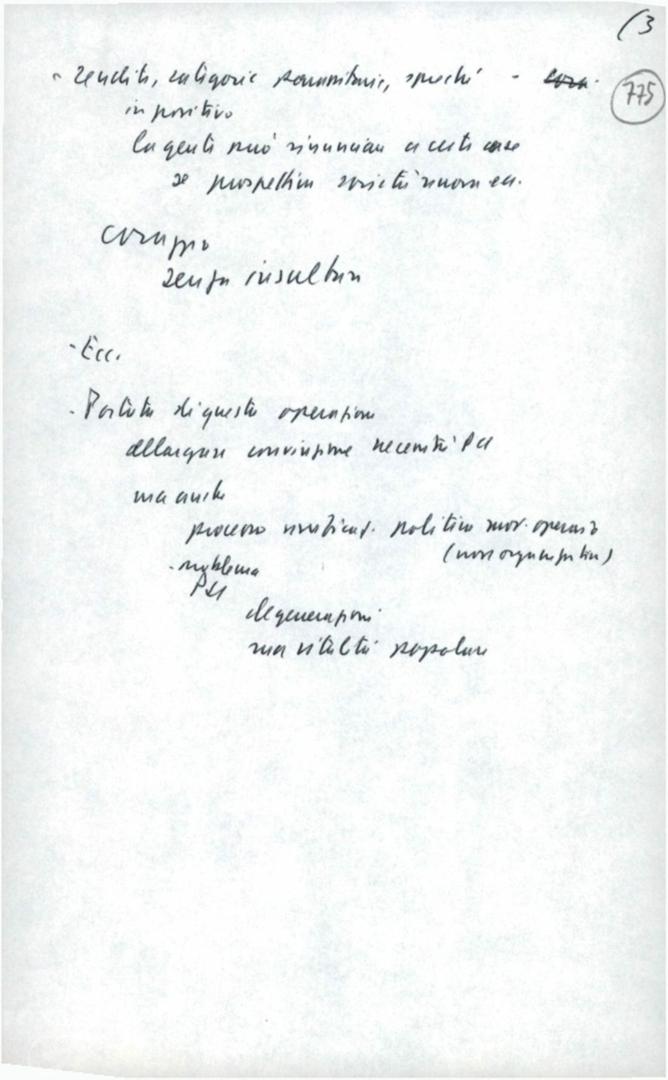 (3
775
- rendite, categorie parassitarie, sprechi -
in positivo
la gente può rinunciare a certe cose
se prospettiva società nuova ecc.
coraggio
senza insultare
- Ecc.
- Portata di questa operazione
allargare convinzione necessità PCI
ma anche
processo unificaz. politica mov. operaio
(non organizzativa)
- problema
PSI
degenerazioni
ma vitalità popolare